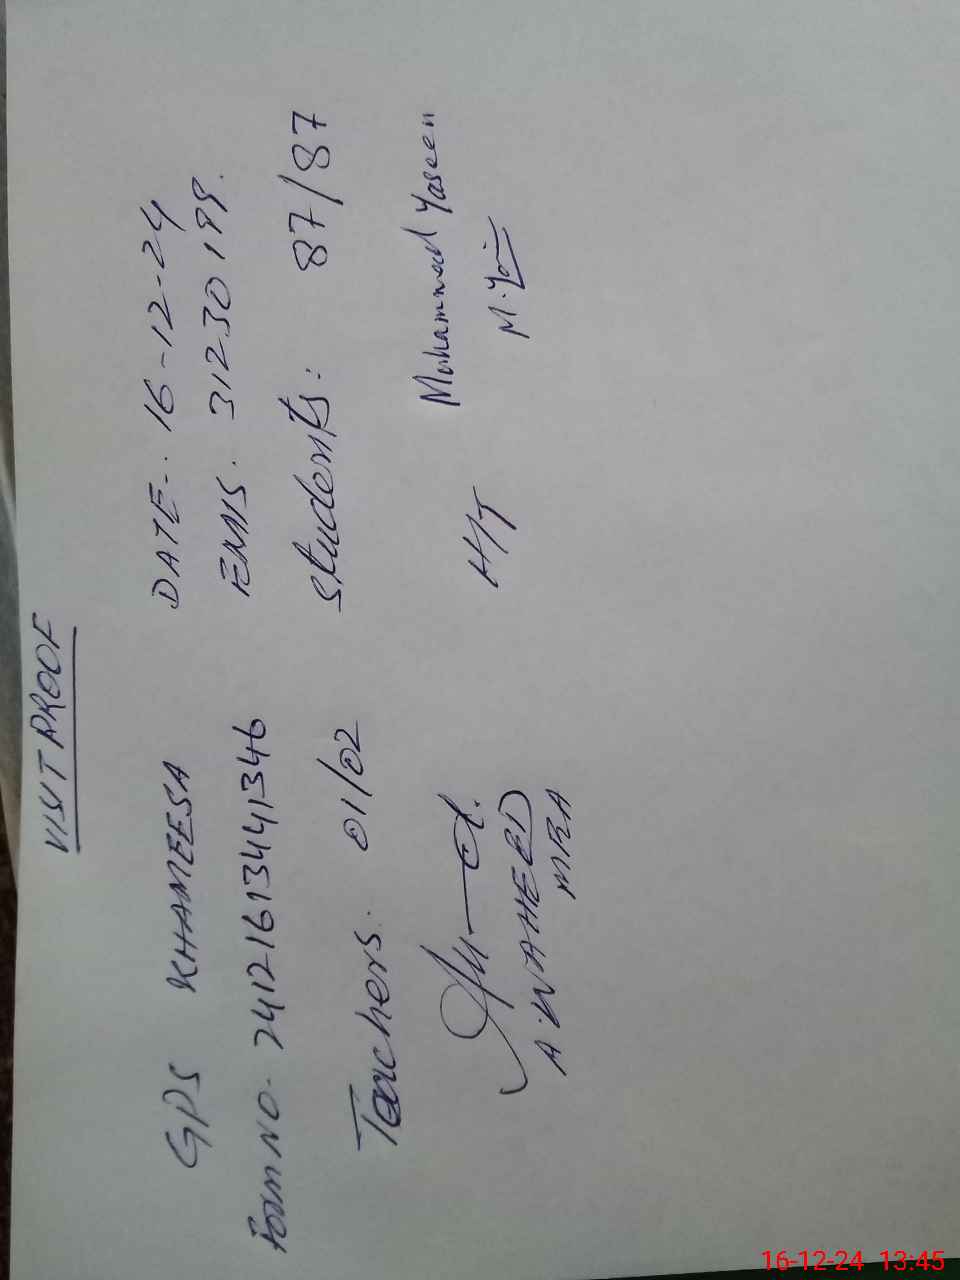 VISIT PROOF
GPS KHAMEESA DATE-. 16-12-24
Form NO. 2412161344 1346 EMIS. 31230199.
Teachers. 01/02 Students: 87/87
A.WAHEED H/T Muhammad Yaseen
MEA M.Ya
16-12-24 13:45